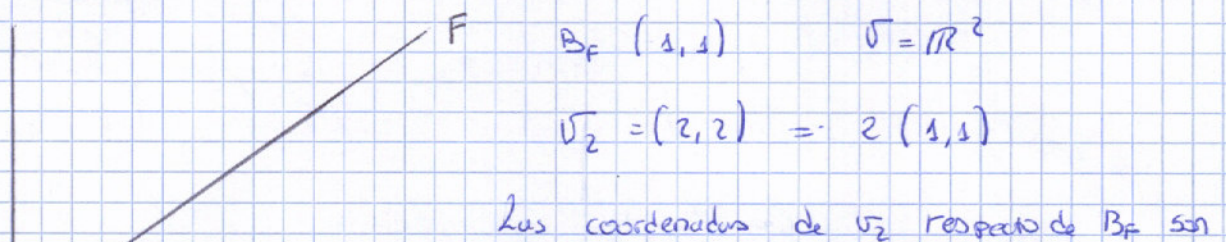 F
B_F (1,1) V = ℝ²
v₂ = (2,2) = 2 (1,1)
Las coordenadas de v₂ respecto de B_F son